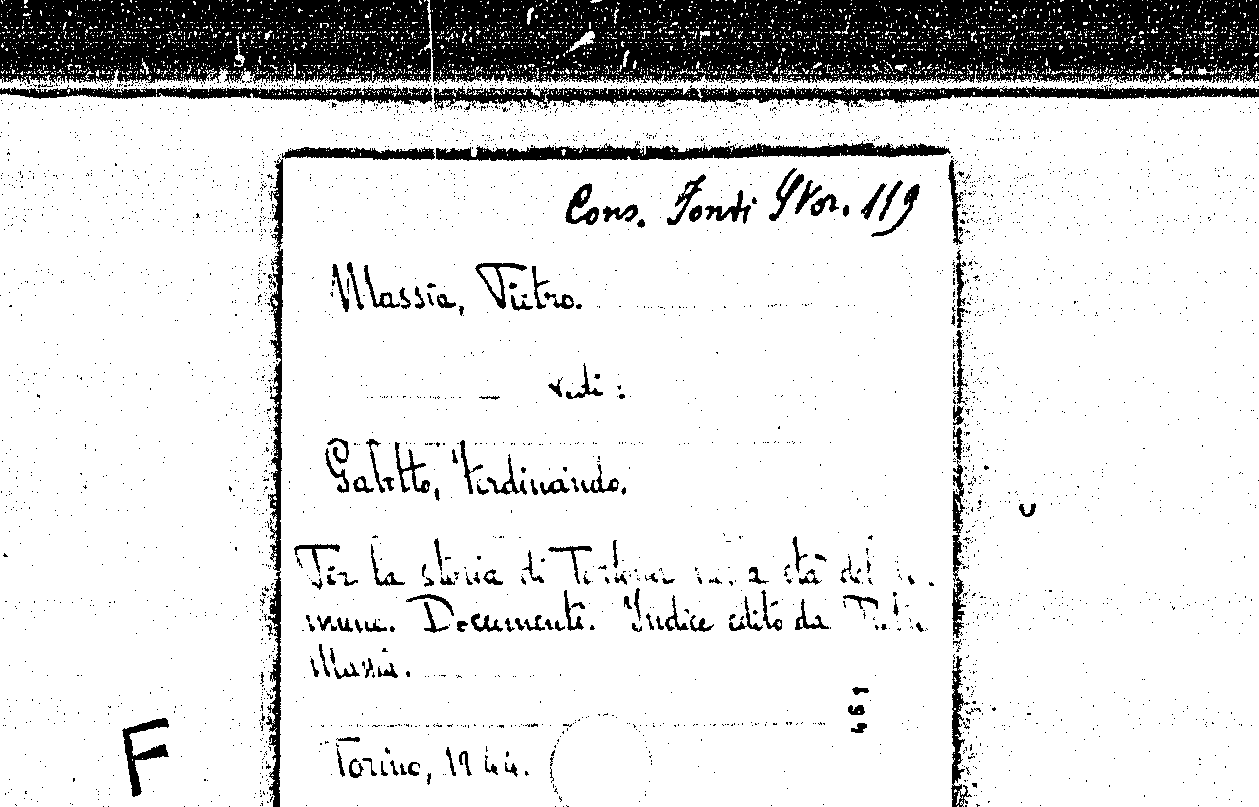 Cons. Fonti Stor. 119
Massia, Pietro.
vedi:
Gabotto, Ferdinando.
Per la storia di Tortona età del
mune. Documenti. Indice edito da Pietro
Massia.
461
Torino, 1944.
F